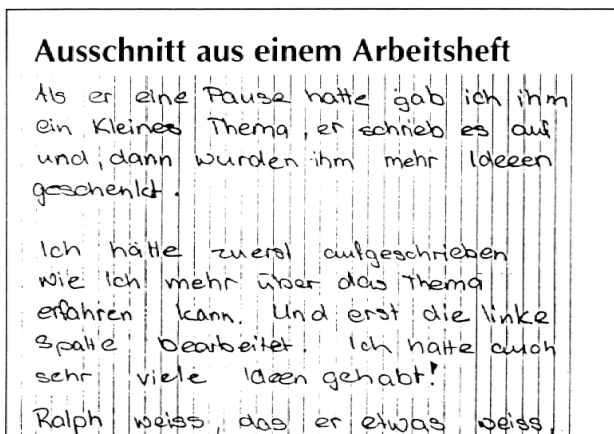 Ausschnitt aus einem Arbeitsheft
Als er eine Pause hatte gab ich ihm
ein Kleines Thema, er schrieb es auf
und, dann wurden ihm mehr Ideeen
geschenkt.
Ich hätte zuerst aufgeschrieben
wie ich mehr über das Thema
erfahren kann. Und erst die linke
Spalte bearbeitet. Ich hatte auch
sehr viele Ideen gehabt!
Ralph weiss, das er etwas weiss.